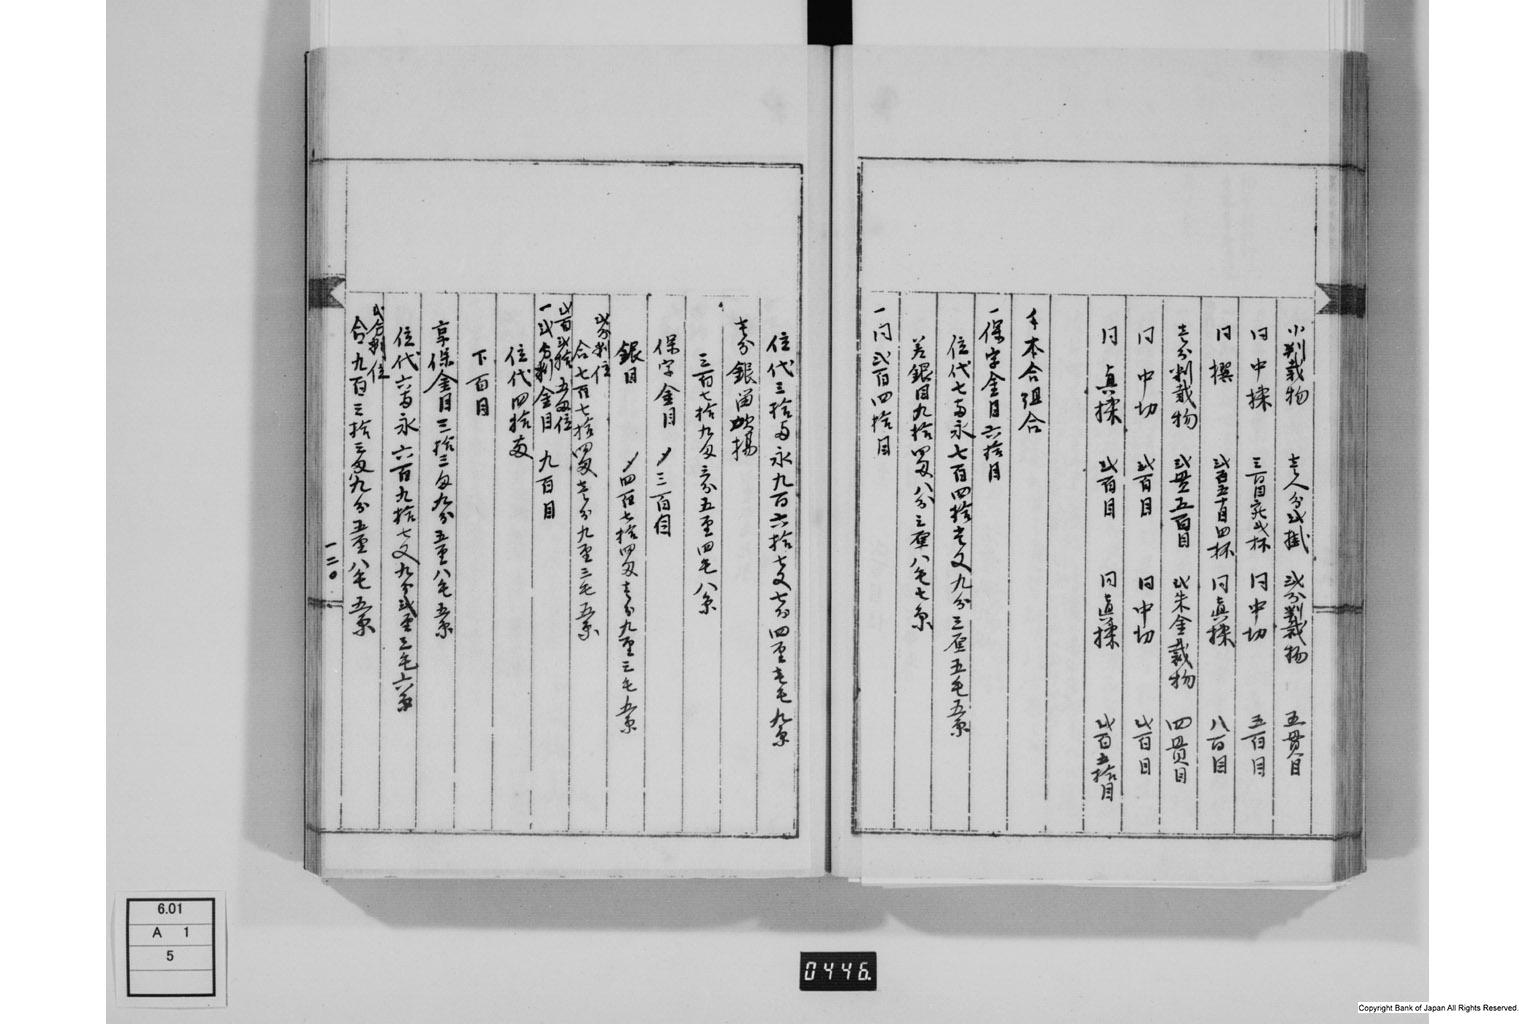 小判裁物 壱人分弐掛 弐分判裁物 五貫目
同中揉 三百目宛弐杯 同中切 五百目
同撰 弐百五十目四杯 同真揉 八百目
壱分判裁物 弐貫五百目 弐朱金裁物 四貫目
同中切 弐百目 同中切 弐百目
同真揉 弐百目 同真揉 弐百五拾目
本合組合
一保字金目六拾目
位代七両永七百四拾壱文九分三厘五毛五糸
差銀目九拾四匁八分三厘八毛七糸
一同弐百四拾目
位代三拾両永九百六拾七文七分四厘壱毛九糸
壱分銀留吹揚
三百七拾九匁三分五厘四毛八糸
保字金目〆三百目
銀目〆四百七拾四匁壱分九厘三毛五糸
弐分判位
合七百七拾四匁壱分九厘三毛五糸
弐百弐拾五匁位
一弐分判金目九百目
位代四拾両
下百目
享保金目三拾三匁九分五厘八毛五糸
位代六両永六百九拾七文九分弐厘三毛六糸
弐分判位
合九百三拾三匁九分五厘八毛五糸
一二〇
6.01
A 1
5
0446.
Copyright Bank of Japan All Rights Reserved.